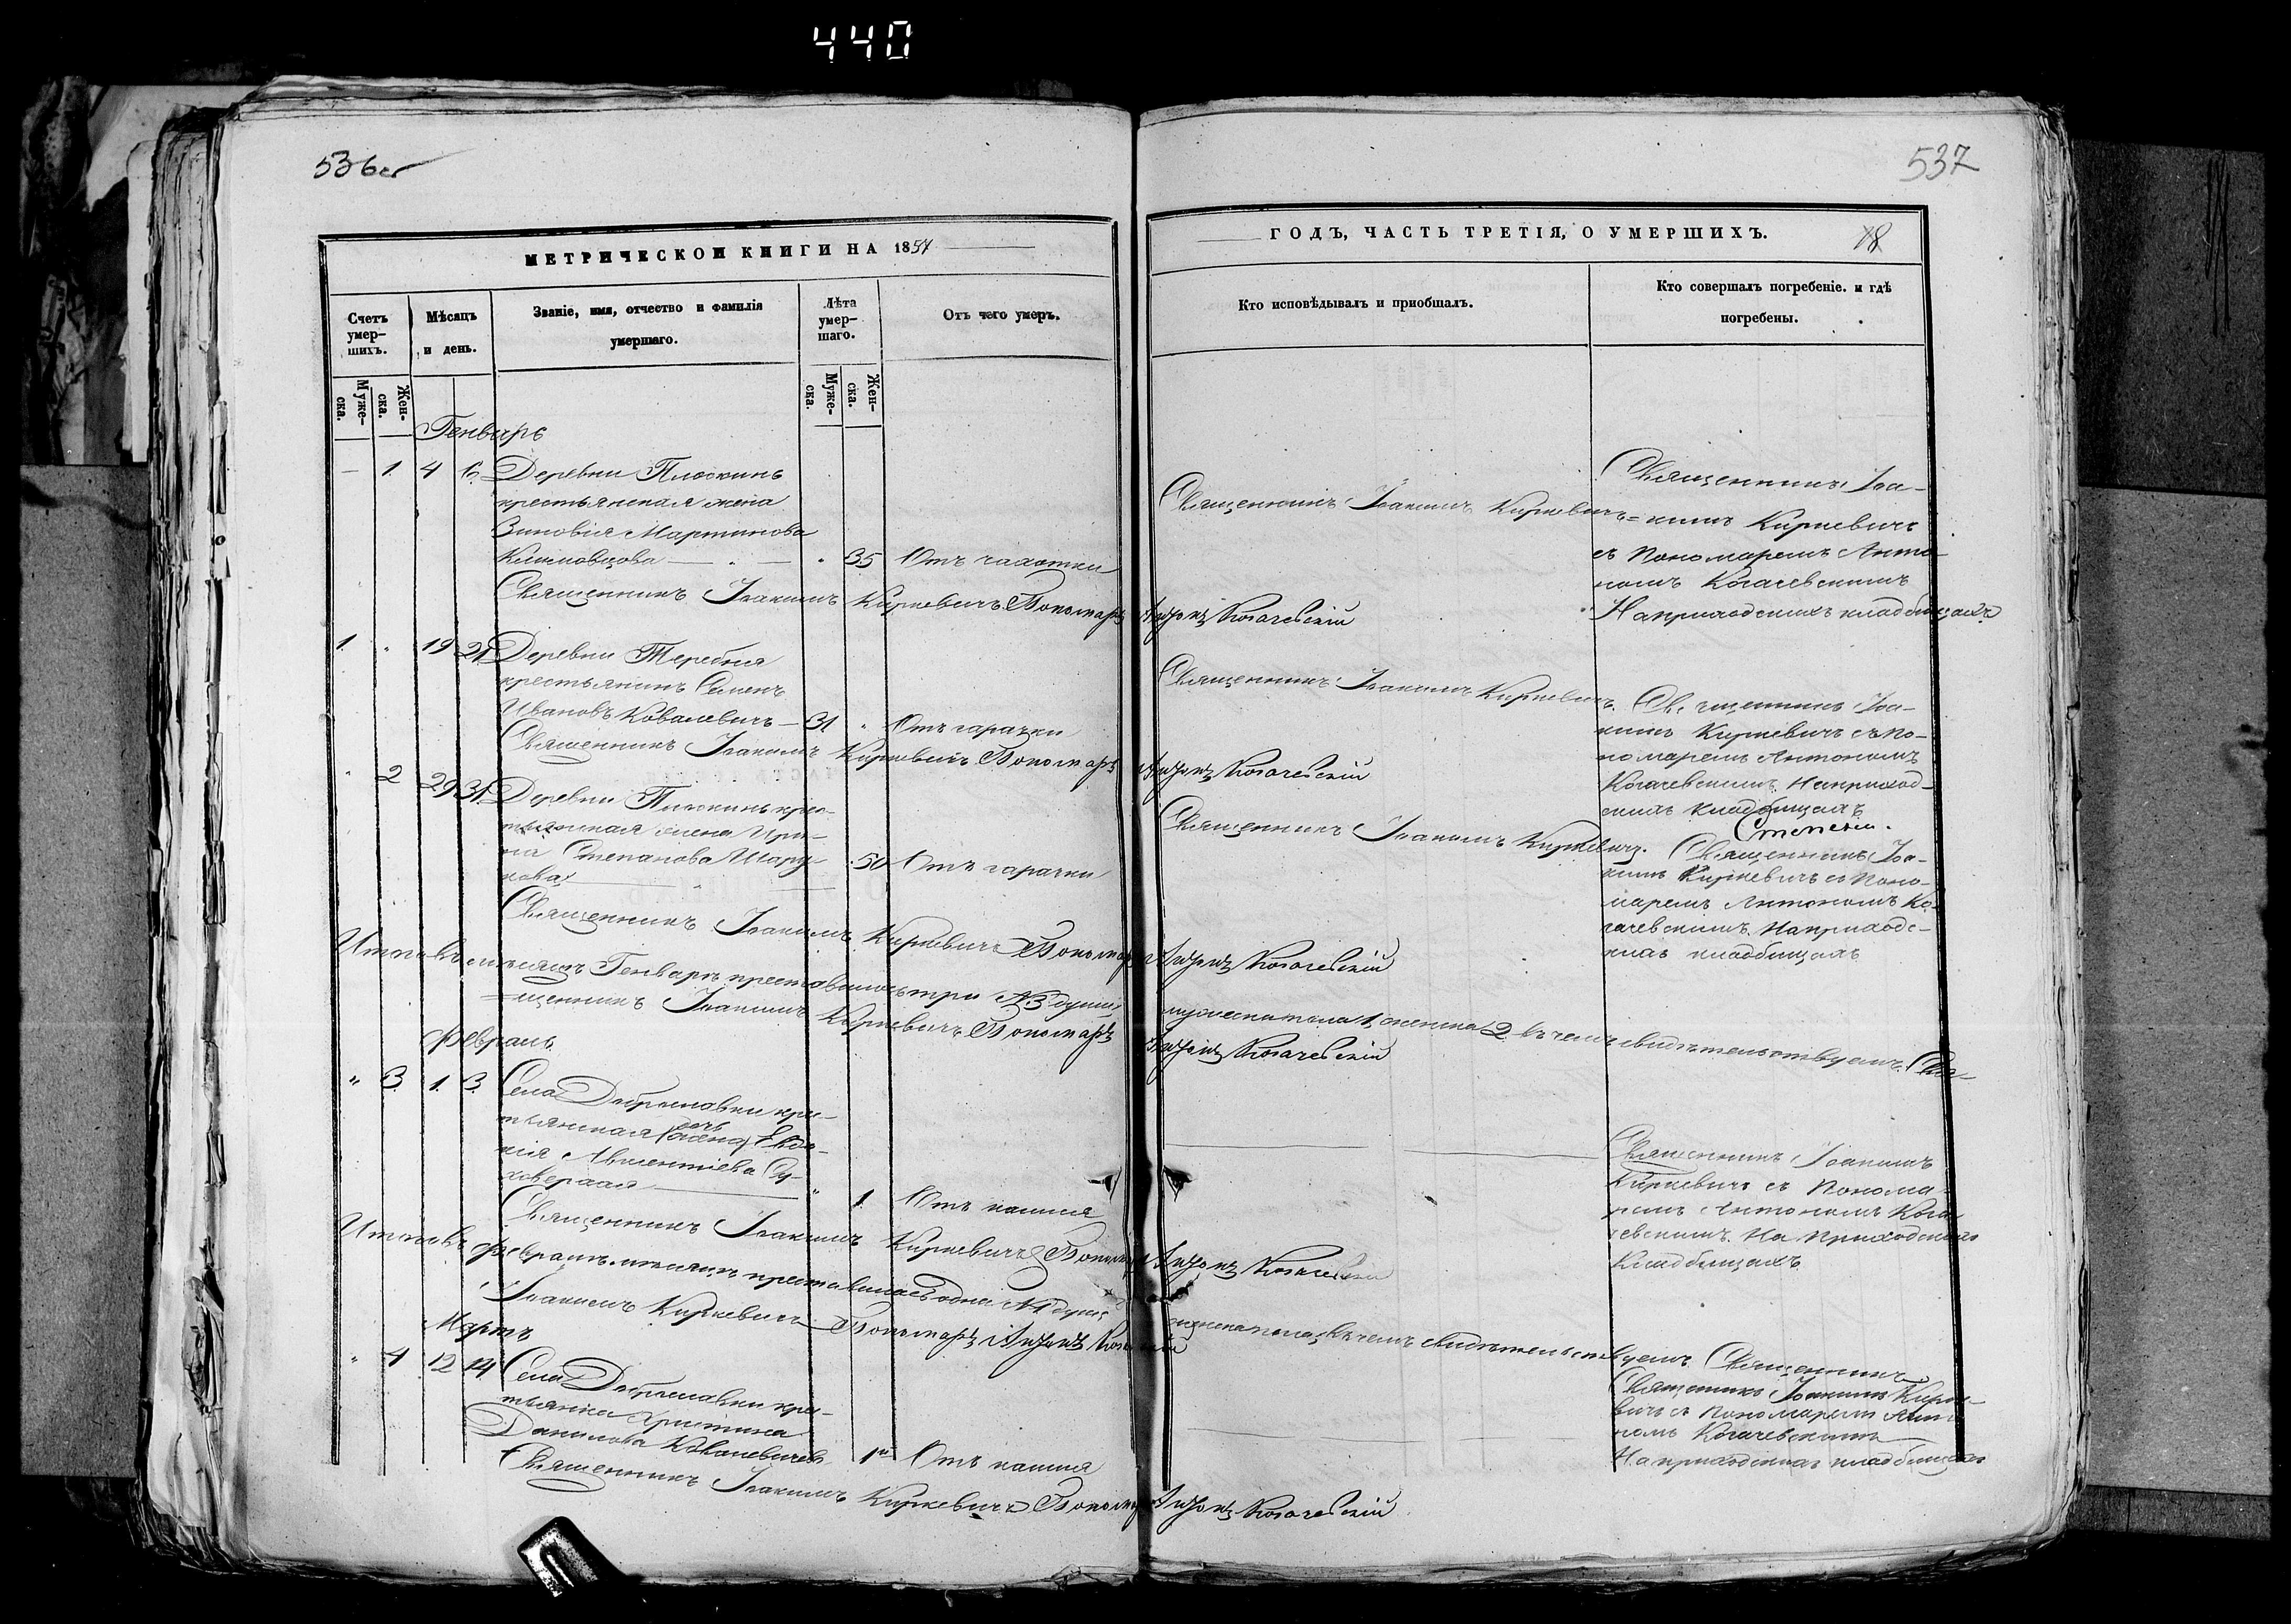 440
536об
537
МЕТРИЧЕСКОЙ КНИГИ НА 1857
ГОДЪ, ЧАСТЬ ТРЕТІЯ, О УМЕРШИХЪ.
18
Счетъ умер-шихъ.
Мѣсяцъ и день.
Званіе, имя, отчество и фамилія умершаго.
Лѣта умер-шаго.
Отъ чего умеръ.
Кто исповѣдывалъ и приобщалъ.
Кто совершалъ погребеніе. и гдѣ погребены.
Муже-ска.
Жен-ска.
Муже-ска.
Жен-ска.
Генварь
— 1. 4 6 Деревни Плоскинь
крестьянская жена
Зиновія Мартинова
Климовцова — 35 Отъ чахотки
Священникъ Іоакимъ Киркевичъ
Священникъ Іоа-
кимъ Киркевичъ
съ Пономаремъ Анто-
номъ Когачевскимъ
На приходскихъ кладбищахъ
Священникъ Іоакимъ Киркевичъ Пономарь Антонъ Когачевскій
1. " 19 21 Деревни Теребня
крестьянинъ Семенъ
Ивановъ Ковалевичъ — 31 " Отъ гарачки
Священникъ Іоакимъ Киркевичъ.
Священникъ Іоа-
кимъ Киркевичъ съ По-
номаремъ Антономъ
Когачевскимъ На приход-
скихъ кладбищахъ
Священникъ Іоакимъ Киркевичъ Пономарь Антонъ Когачевскій
" 2 29 31 Деревни Плоскинь крес-
тьянская жена Ири-
на Степанова Шару-
кова 50 Отъ гарачки
Священникъ Іоакимъ Киркевичъ.
Священникъ Іоа-
кимъ Киркевичъ съ Поно-
маремъ Антономъ Ко-
гачевскимъ На приходс-
кихъ кладбищахъ
Священникъ Іоакимъ Киркевичъ Пономарь Антонъ Когачевскій
Итого въ мѣсяцѣ Генварѣ преставилось три №3 души мужеска пола 1, женска 2 въ чемъ свидѣтельствуемъ. Свя-
щенникъ Іоакимъ Киркевичъ Пономарь Антонъ Когачевскій
Февраль
" 3. 1. 3. Села Доброславки кре-
тьянская дочь Евдо-
кія Авксентіева Су-
ховерхая " 1. Отъ кашля
Священникъ Іоакимъ
Киркевичъ съ Понома-
ремъ Антономъ Кога-
чевскимъ. На Приходскихъ
Кладбищахъ
Священникъ Іоакимъ Киркевичъ Пономарь Антонъ Когачевскій
Итого въ Февралѣ мѣсяцѣ преставилась одна №1 душа женска пола, въ чемъ свидѣтельствуемъ Священникъ
Іоакимъ Киркевичъ Пономарь Антонъ Когачевскій
Мартъ
" 4 12 14 Села Доброславки кре-
тьянка Христина
Данилова Ковалевичева 1 Отъ кашля
Священникъ Іоакимъ Кирке-
вичъ съ Пономаремъ Анто-
номъ Когачевскимъ
На приходскихъ кладбищахъ
Священникъ Іоакимъ Киркевичъ Пономарь Антонъ Когачевскій